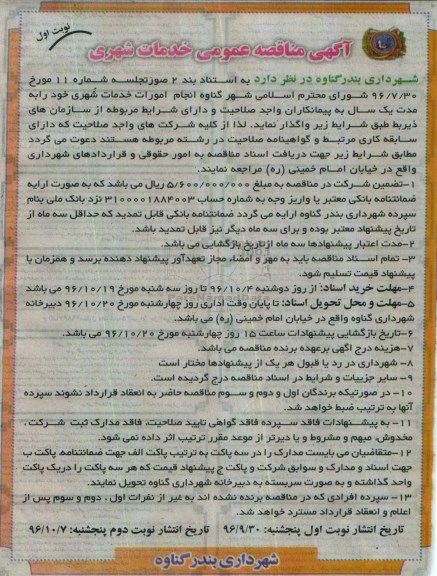 نوبت اول
آگهی مناقصه عمومی خدمات شهری
شهرداری بندرگناوه در نظر دارد به استناد بند ۲ صورتجلسه شماره ۱۱ مورخ
۹۶/۷/۳۰ شورای محترم اسلامی شهر گناوه انجام امورات خدمات شهری خود را به
مدت یک سال به پیمانکاران واجد صلاحیت و دارای شرایط مربوطه از سازمان های
ذیربط طبق شرایط زیر واگذار نماید. لذا از کلیه شرکت های واجد صلاحیت که دارای
سابقه کاری مرتبط و گواهینامه صلاحیت در رشته مربوطه هستند دعوت می گردد
مطابق شرایط زیر جهت دریافت اسناد مناقصه به امور حقوقی و قراردادهای شهرداری
واقع در خیابان امام خمینی (ره) مراجعه نمایند.
۱-تضمین شرکت در مناقصه به مبلغ ۵/۶۰۰/۰۰۰/۰۰۰ ریال می باشد که به صورت ارایه
ضمانتنامه بانکی معتبر یا واریز وجه به شماره حساب ۳۱۰۰۰۰۱۸۸۴۰۰۳ نزد بانک ملی بنام
سپرده شهرداری بندر گناوه ارایه می گردد ضمانتنامه بانکی قابل تمدید که حداقل سه ماه از
تاریخ پیشنهاد معتبر بوده و برای سه ماه دیگر نیز قابل تمدید باشد.
۲-مدت اعتبار پیشنهادها سه ماه از تاریخ بازگشایی می باشد.
۳- تمام اسناد مناقصه باید به مهر و امضاء مجاز تعهدآور پیشنهاد دهنده برسد و همزمان با
پیشنهاد قیمت تسلیم شود.
۴-مهلت خرید اسناد: از روز دوشنبه ۹۶/۱۰/۴ تا روز سه شنبه مورخ ۹۶/۱۰/۱۹ می باشد
۵-مهلت و محل تحویل اسناد: تا پایان وقت اداری روز چهارشنبه مورخ ۹۶/۱۰/۲۰ دبیرخانه
شهرداری گناوه واقع در خیابان امام خمینی (ره) می باشد.
۶-تاریخ بازگشایی پیشنهادات ساعت ۱۵ روز چهارشنبه مورخ ۹۶/۱۰/۲۰ می باشد.
۷-هزینه درج آگهی برعهده برنده مناقصه می باشد.
۸- شهرداری در رد یا قبول هر یک از پیشنهادها مختار است
۹- سایر جزییات و شرایط در اسناد مناقصه درج گردیده است.
۱۰- در صورتیکه برندگان اول و دوم و سوم مناقصه حاضر به انعقاد قرارداد نشوند سپرده
آنها به ترتیب ضبط خواهد شد.
۱۱- به پیشنهادات فاقد سپرده فاقد گواهی تایید صلاحیت، فاقد مدارک ثبت شرکت ،
مخدوش، مبهم و مشروط و یا دیرتر از موعد مقرر ترتیب اثر داده نمی شود.
۱۲-متقاضیان می بایست مدارک را در سه پاکت به ترتیب پاکت الف جهت ضمانتنامه، پاکت ب
جهت اسناد و مدارک و سوابق شرکت و پاکت ج پیشنهاد قیمت که هر سه پاکت را در یک پاکت
واحد گذاشته و به صورت سربسته به دبیرخانه شهرداری گناوه تحویل نمایند.
۱۳- سپرده افرادی که در مناقصه برنده نشده اند به غیر از نفرات اول ، دوم و سوم پس از
اعلام و انعقاد قرارداد مسترد خواهد شد.
تاریخ انتشار نوبت اول پنجشنبه: ۹۶/۹/۳۰ تاریخ انتشار نوبت دوم پنجشنبه: ۹۶/۱۰/۷
شهرداری بندرگناوه